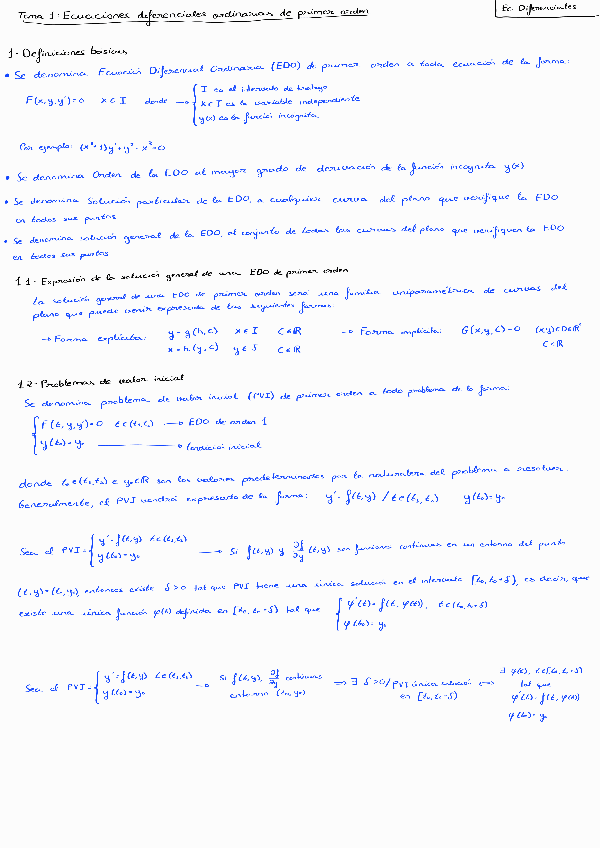 Tema 1: Ecuaciones diferenciales ordinarias de primer orden
Ec. Diferenciales
1- Definiciones basicas
• Se denomina Ecuación Diferencial Ordinaria (EDO) de primer orden a toda ecuación de la forma:
F(x,y,y')=0 x∈I donde → { I es el intervalo de trabajo
x∈I es la variable independiente
y(x) es la función incognita.
Por ejemplo: (x²+1)y'+y²-x³=0
• Se denomina Orden de la EDO al mayor grado de derivación de la función incognita y(x)
• Se denomina Solución particular de la EDO, a cualquier curva del plano que verifique la EDO
en todos sus puntos
• Se denomina solución general de la EDO, al conjunto de todas las curvas del plano que verifiquen la EDO
en todos sus puntos
1.1- Expresión de la solución general de una EDO de primer orden
La solución general de una EDO de primer orden será una familia uniparamétrica de curvas del
plano que puede venir expresada de las siguientes formas:
→ Forma explícita: y=g(x,C) x∈I C∈ℝ → Forma implícita: G(x,y,C)=0 (x,y)∈D⊂ℝ²
x=h(y,C) y∈J C∈ℝ C∈ℝ
1.2- Problemas de valor inicial
Se denomina problema de valor inicial (PVI) de primer orden a todo problema de la forma:
{ F(t,y,y')=0 t∈(t₁,t₂) → EDO de orden 1
y(t₀)=y₀ → Condición inicial
donde t₀∈(t₁,t₂) e y₀∈ℝ son los valores predeterminados por la naturaleza del problema a resolver.
Generalmente, el PVI vendrá expresado de la forma: y'=f(t,y) / t∈(t₁,t₂) y(t₀)=y₀
Sea el PVI={ y'=f(t,y) t∈(t₁,t₂)
y(t₀)=y₀ → Si f(t,y) y ∂f/∂y (t,y) son funciones continuas en un entorno del punto
(t,y)=(t₀,y₀) entonces existe δ>0 tal que PVI tiene una única solución en el intervalo [t₀,t₀+δ), es decir, que
existe una única función φ(t) definida en [t₀,t₀+δ) tal que { φ'(t)=f(t,φ(t)), t∈(t₀,t₀+δ)
φ(t₀)=y₀
Sea el PVI={ y'=f(t,y) t∈(t₁,t₂)
y(t₀)=y₀ → Si f(t,y), ∂f/∂y continuas
entorno (t₀,y₀) ⟹ ∃ δ>0/PVI única solución
en [t₀,t₀+δ) ⟺ ∃ φ(t), t∈[t₀,t₀+δ)
tal que
φ'(t)=f(t,φ(t))
φ(t₀)=y₀